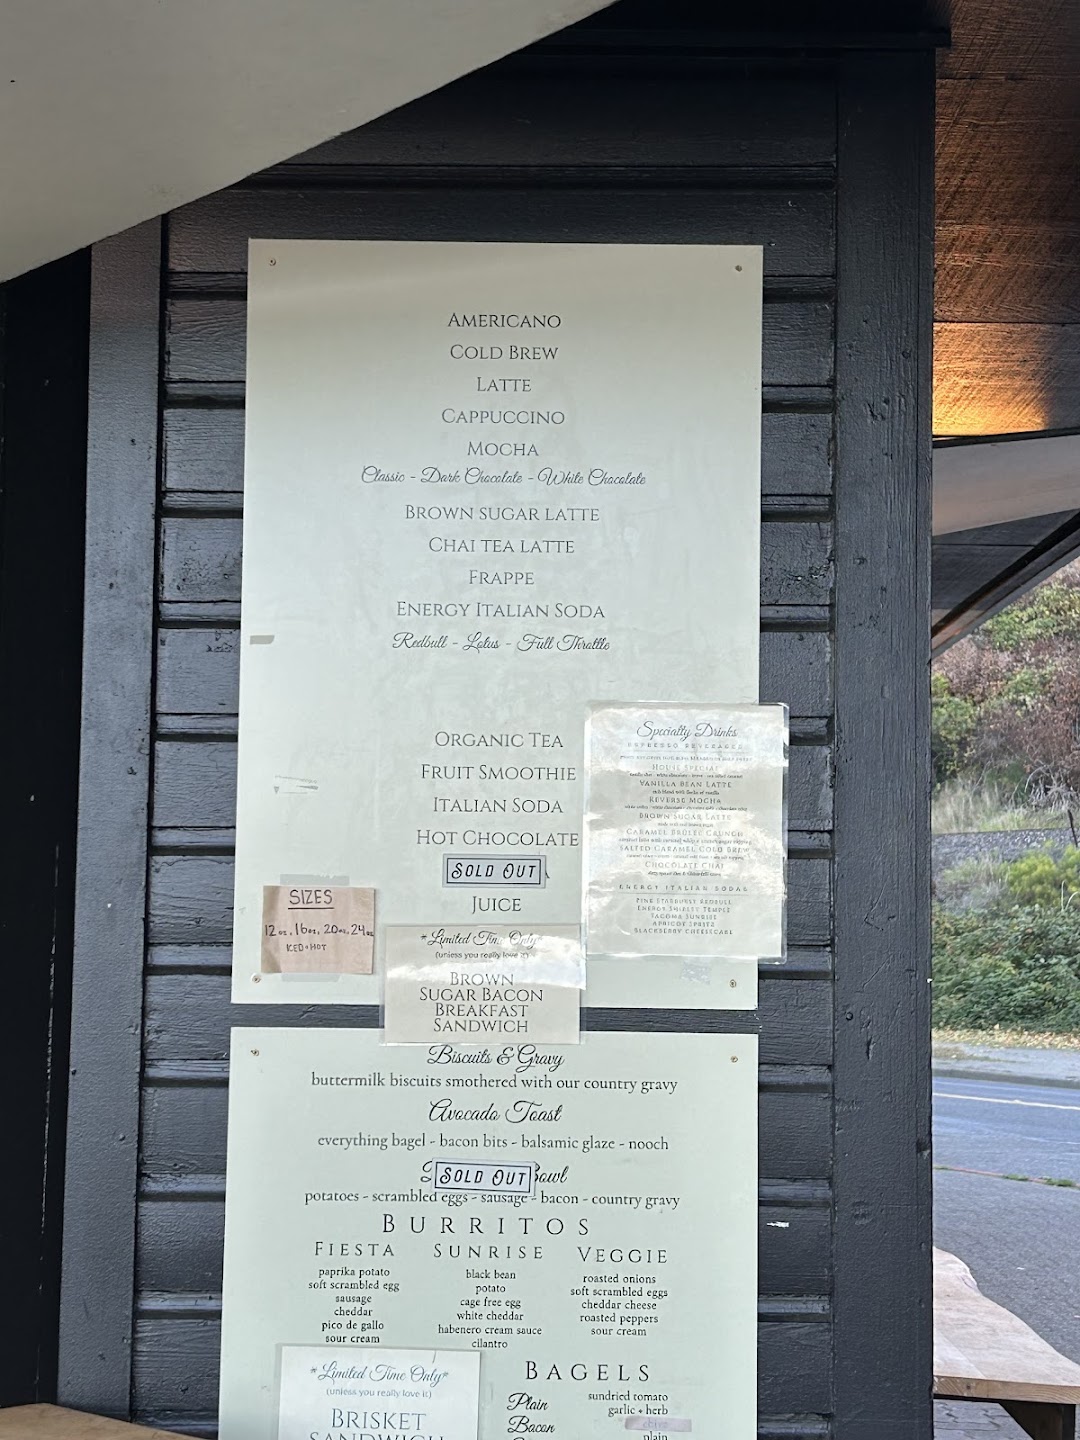 AMERICANO
COLD BREW
LATTE
CAPPUCCINO
MOCHA
Classic - Dark Chocolate - White Chocolate
BROWN SUGAR LATTE
CHAI TEA LATTE
FRAPPE
ENERGY ITALIAN SODA
Redbull - Lotus - Full Throttle
ORGANIC TEA
FRUIT SMOOTHIE
ITALIAN SODA
HOT CHOCOLATE
SOLD OUT
JUICE
SIZES
12oz, 16oz, 20oz, 24oz
ICED + HOT
Specialty Drinks
ESPRESSO BEVERAGES
HOUSE SPECIAL
VANILLA BEAN LATTE
REVERSE MOCHA
BROWN SUGAR LATTE
CARAMEL BRULEE CRUNCH
SALTED CARAMEL COLD BREW
CHOCOLATE CHAI
ENERGY ITALIAN SODAS
PINK STARBURST REDBULL
ENERGY SHIRLEY TEMPLE
TACOMA SUNRISE
APRICOT SPRITZ
BLACKBERRY CHEESECAKE
*Limited Time Only*
(unless you really love it)
BROWN
SUGAR BACON
BREAKFAST
SANDWICH
Biscuits & Gravy
buttermilk biscuits smothered with our country gravy
Avocado Toast
everything bagel - bacon bits - balsamic glaze - nooch
SOLD OUT Bowl
potatoes - scrambled eggs - sausage - bacon - country gravy
BURRITOS
FIESTA
paprika potato
soft scrambled egg
sausage
cheddar
pico de gallo
sour cream
SUNRISE
black bean
potato
cage free egg
white cheddar
habenero cream sauce
cilantro
VEGGIE
roasted onions
soft scrambled eggs
cheddar cheese
roasted peppers
sour cream
*Limited Time Only*
(unless you really love it)
BRISKET
SANDWICH
BAGELS
Plain
Bacon
sundried tomato
garlic + herb
plain